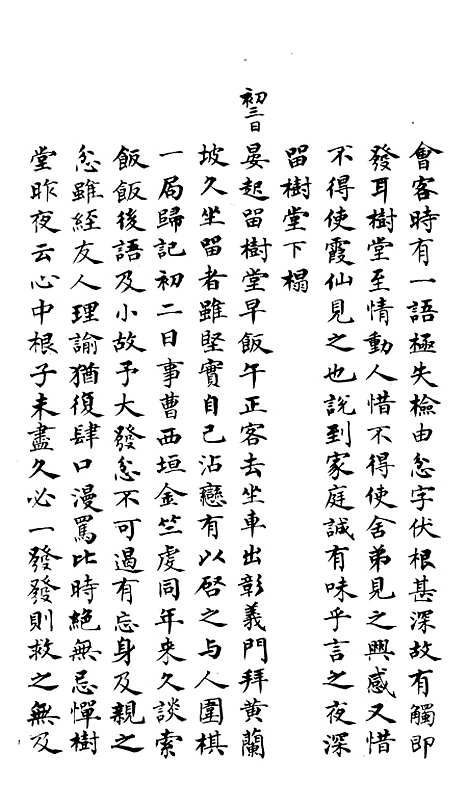 會客時有一語極失檢由忿字伏根甚深故有觸即
發耳樹堂至情動人惜不得使舍弟見之興感又惜
不得使霞仙見之也說到家庭誠有味乎言之夜深
留樹堂下榻
初三日晏起留樹堂早飯午正客去坐車出彰義門拜黄蘭
坡久坐留者雖堅實自己沾戀有以啓之与人圍棋
一局歸記初二日事曹西垣金竺虔同年来久談索
飯飯後語及小故予大發忿不可遏有忘身及親之
忿雖經友人理諭猶復肆口漫罵比時絕無忌憚樹
堂昨夜云心中根子未盡久必一發發則救之無及